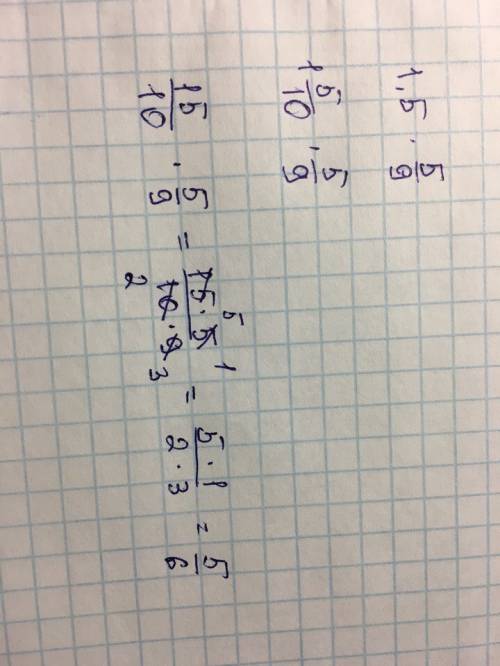 1,5 · 5/9
1 5/10 · 5/9
15/10 · 5/9 = 15 · 5 / 10 · 9 = 5 · 1 / 2 · 3 = 5/6
5 1
2 3